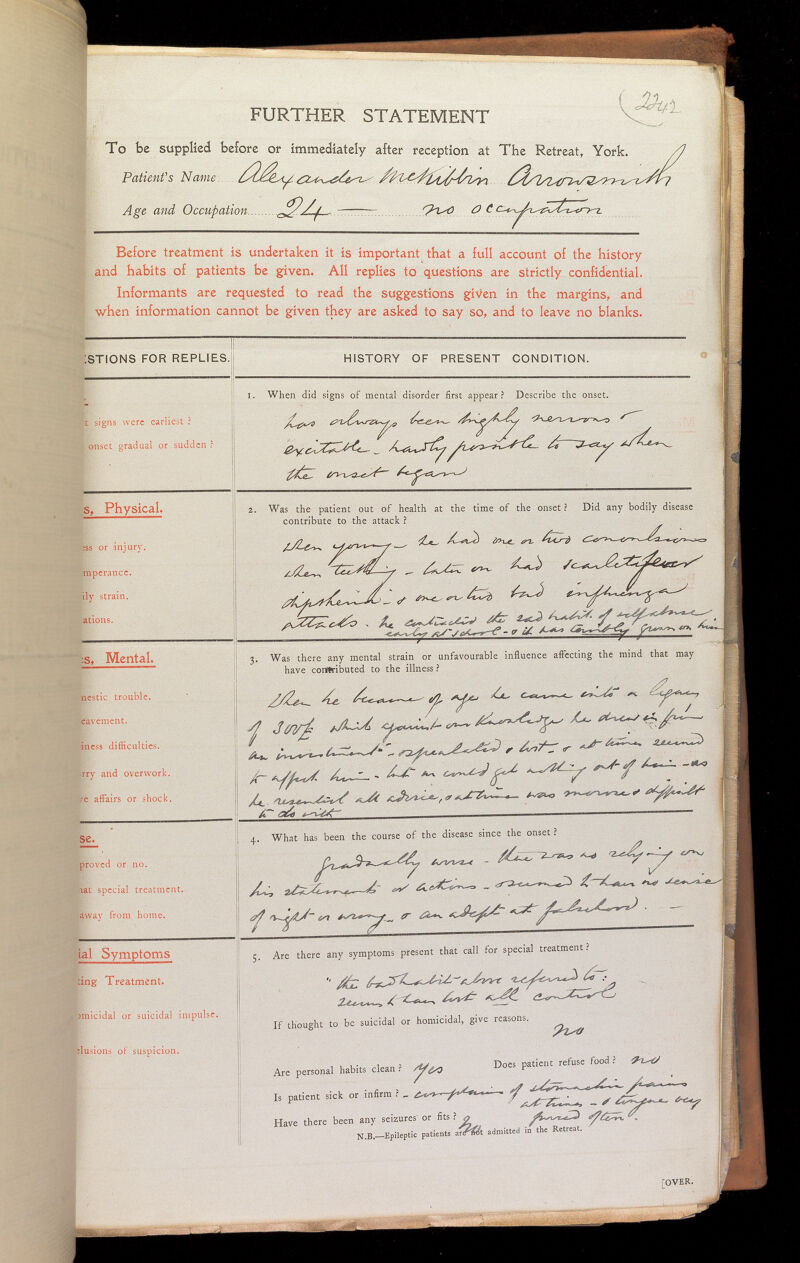 2242
FURTHER STATEMENT
To be supplied before or immediately after reception at The Retreat, York.
Patient's Name Alexander McKibbin Arrowsmith
Age and Occupation 24 — no occupation
Before treatment is undertaken it is important that a full account of the history
and habits of patients be given. All replies to questions are strictly confidential.
Informants are requested to read the suggestions given in the margins, and
when information cannot be given they are asked to say so, and to leave no blanks.
ESTIONS FOR REPLIES.
HISTORY OF PRESENT CONDITION.
t signs were earliest ?
onset gradual or sudden ?
1. When did signs of mental disorder first appear ? Describe the onset.
has always been highly nervous &
excitable - hardly possible to say when
the onset began
s, Physical.
ess or injury.
mperance.
ily strain.
ations.
2. Was the patient out of health at the time of the onset ? Did any bodily disease
contribute to the attack ?
When young - he had one or two convulsions
when teething - later on had scarlet fever
diptheria - & one or two bad influenza
attacks. he contracted the sad habit of self abuse
early at school - & it has terribly grown on him
s, Mental.
mestic trouble.
eavement.
iness difficulties.
rry and overwork.
ve affairs or shock.
3. Was there any mental strain or unfavourable influence affecting the mind that may
have contributed to the illness ?
When he became of age he came into a legacy
of 300£ which against our knowledge he drew from
an investment - & speculated & lost - & at times seemed
to affect him - but we could get nothing out of him - as
he resented all advice, & at times was morose & difficult
to do with
se.
proved or no.
hat special treatment.
away from home.
4. What has been the course of the disease since the onset ?
gradually worse - there was no relying on
his statements or actions - & seemed to have no sense
of right or wrong - & an adept at falsehood. —
ial Symptoms
ting Treatment.
omicidal or suicidal impulse.
elusions of suspicion.
5. Are there any symptoms present that call for special treatment ?
" the bad habit above referred to :
seems to have lost all control
If thought to be suicidal or homicidal, give reasons.
no
Are personal habits clean ? Yes Does patient refuse food ? no
Is patient sick or infirm ? - complains of stomachic pains
at times - & tongue very
Have there been any seizures or fits ? no furred often.
N.B.—Epileptic patients are not admitted in the Retreat.
[OVER.